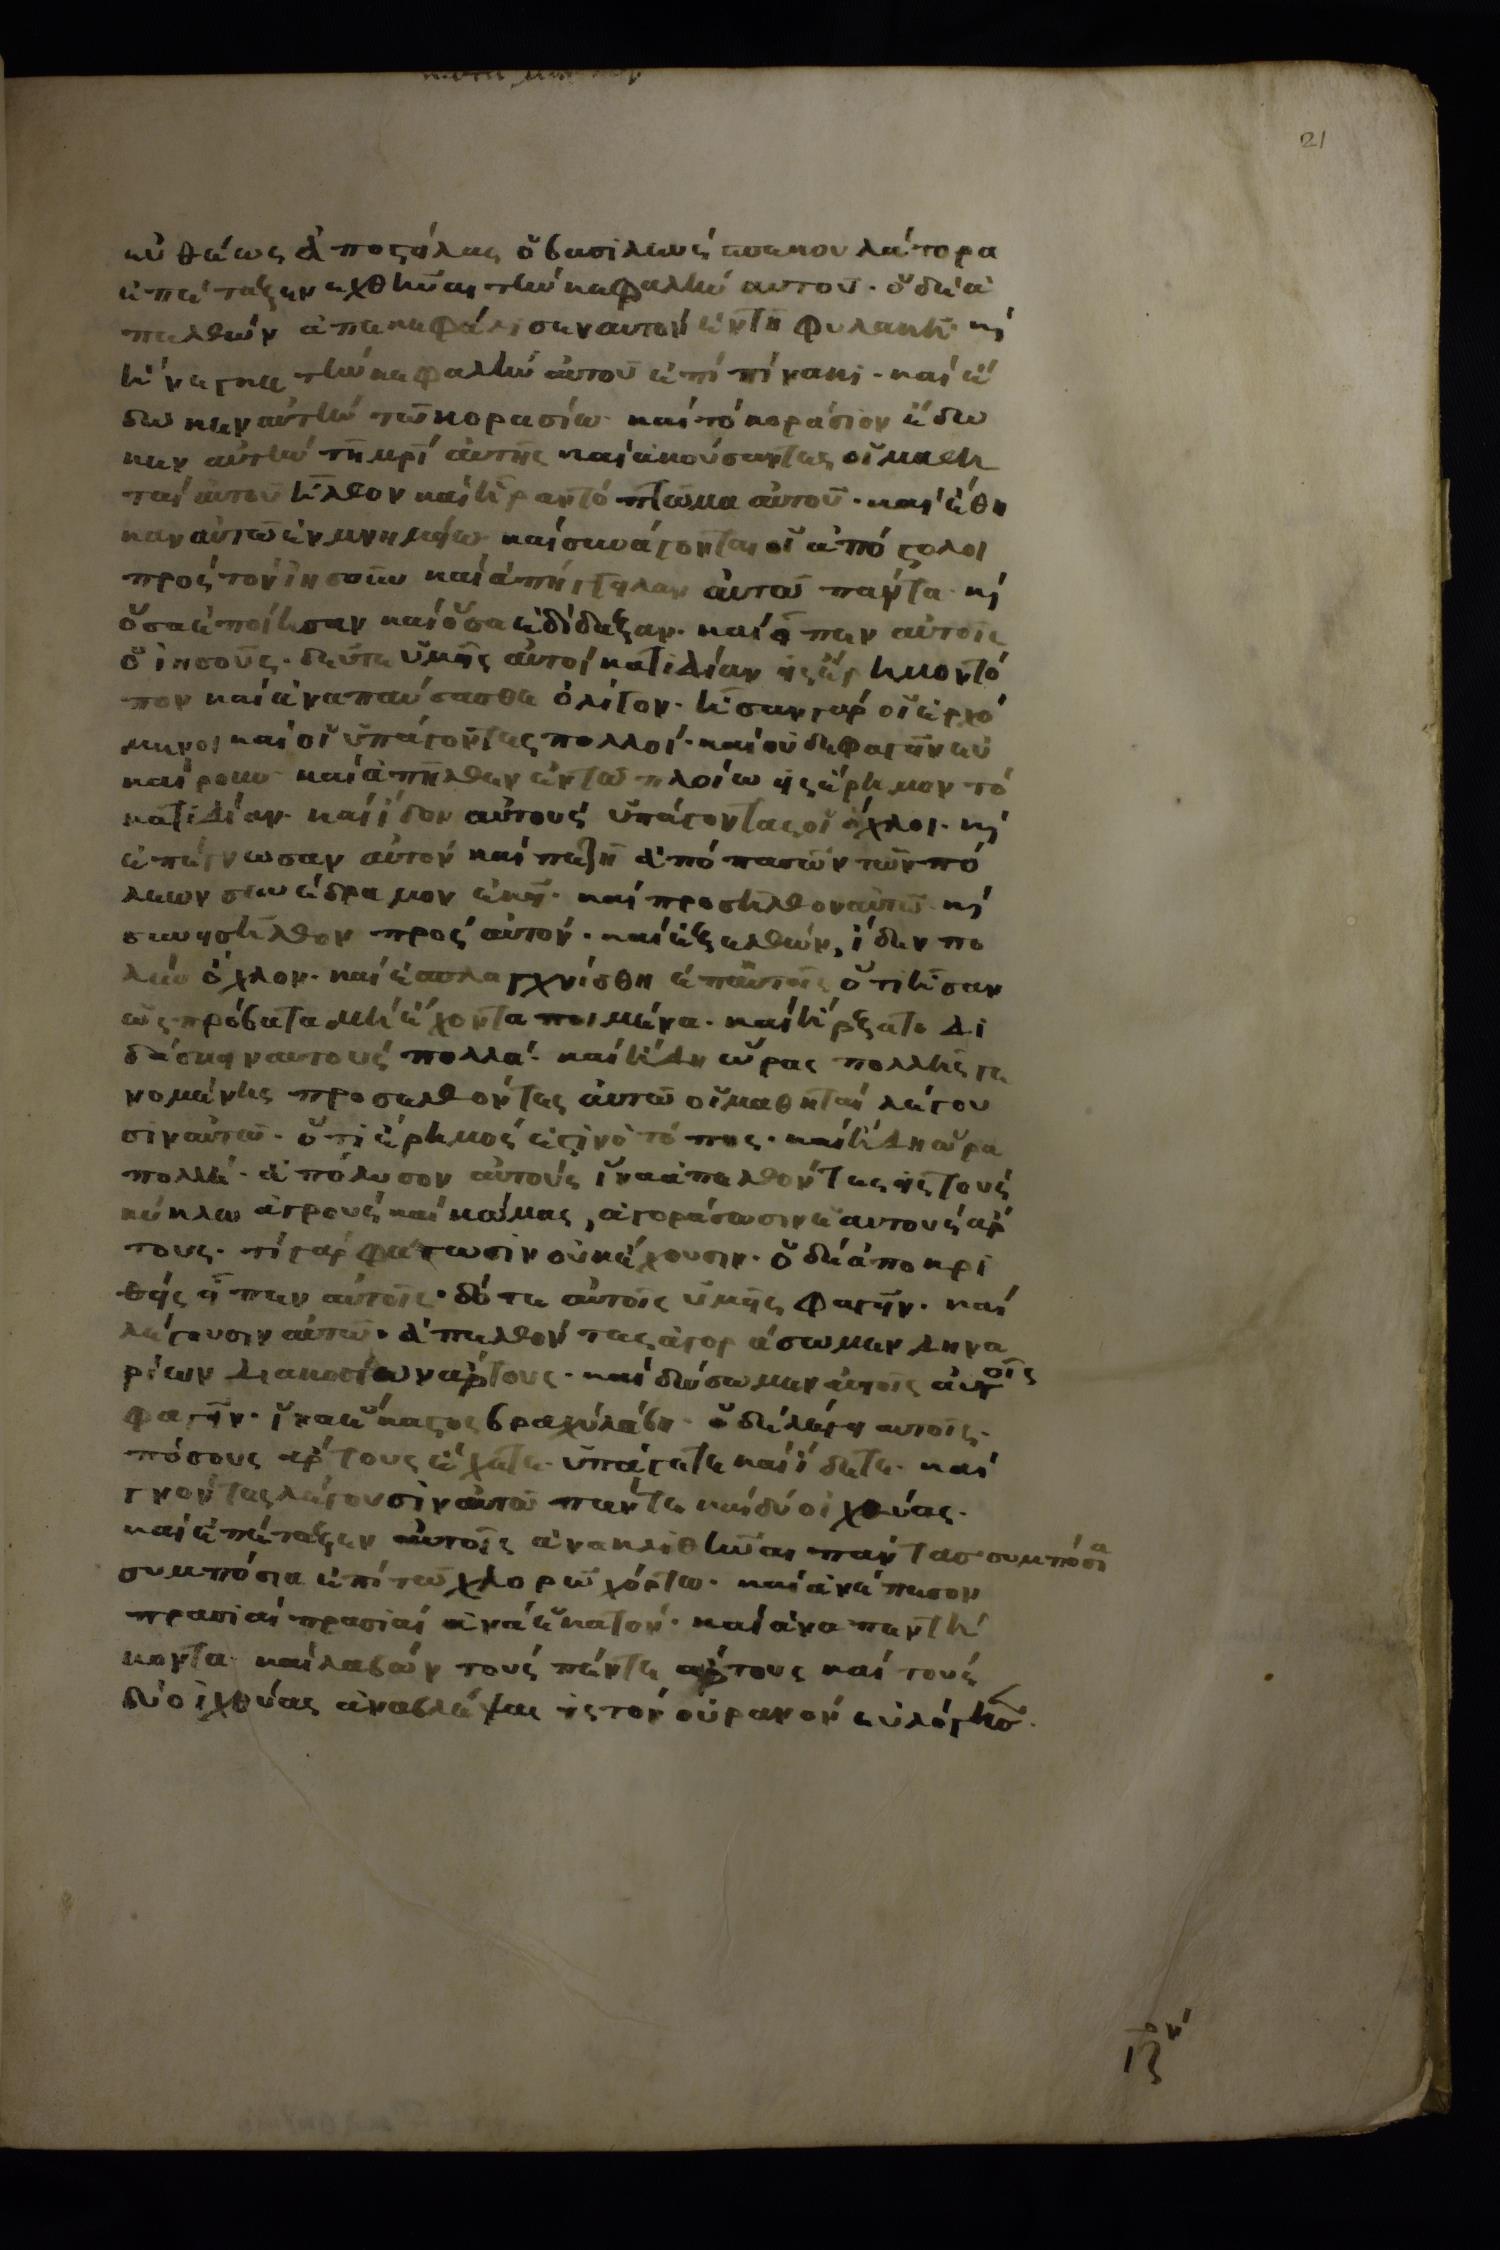 21
εὐθέως ἀποστείλας ὁ βασιλεύς σπεκουλάτορα
ἐπέταξεν ἀχθῆναι τὴν κεφαλὴν αυτοῦ· ὁ δὲ ἀ
πελθὼν ἀπεκεφάλισεν αυτον ἐν τῆ φυλακῆ· κ(αι)
ἤνεγκε τὴν κεφαλὴν αὐτοῦ ἐπὶ πίνακι· καὶ ἔ
δωκεν αὐτὴν τῶ κορασίω· καὶ τὸ κοράσιον ἔδω
κεν αὐτὴν τῆ μρὶ αὐτῆς καὶ ἀκούσαντες οἱ μαθη
ταὶ αὐτοῦ ἦλθον καὶ ἦραν τὸ πτῶμα αὐτοῦ· καὶ ἔθη
καν αὐτῶ ἐν μνημείω· καὶ συνάγονται οἱ ἀπόστολοι
πρὸς τὸν ἰησοῦν καὶ ἀπήγγειλαν αὐτῶ πάντα· κ(αι)
ὅσα ἐποίησαν καὶ ὅσα ἐδίδαξαν· καὶ εἶπεν αὐτοῖς
ὁ ἰησοῦς· δεῦτε ὑμεῖς αὐτοὶ κατιδίαν εἰς ἔρημον τό
πον καὶ ἀναπαύσασθε ὀλίγον· ἦσαν γὰρ οἱ ἐρχό
μενοι καὶ οἱ ὑπάγοντες πολλοί· καὶ οὐδὲ φαγεῖν εὐ
καίρουν· καὶ ἀπῆλθεν ἐν τῶ πλοίω εἰς ἔρημον τό
κατιδίαν· καὶ ἴδον αὐτοὺς ὑπάγοντας οἱ ὄχλοι· κ(αι)
ἐπέγνωσαν αὐτὸν καὶ πεζῆ ἀπὸ πασῶν τῶν πό
λεων συνέδραμον ἐκεῖ· καὶ προσῆλθον αὐτῶ· κ(αι)
συνεισῆλθον πρὸς αὐτόν· καὶ ἐξελθὼν, ἴδεν πο
λὺν ὄχλον· καὶ ἐσπλαγχνίσθη ἐπαυτοῖς ὅτι ἦσαν
ὡς πρόβατα μὴ ἔχοντα ποιμένα· καὶ ἤρξατο δι
δάσκειν αυτοὺς πολλά· καὶ ἤδη ὥρας πολλῆς γε
νομένης προσελθόντες αὐτῶ οἱ μαθηταὶ λέγου
σιν αὐτῶ· ὅτι ἔρημός ἐστιν ὁ τόπος· καὶ ἤδη ὥρα
πολλή· ἀπόλυσον αὐτούς ἵνα ἀπελθόντες εἰς τοὺς
κύκλω ἀγροὺς καὶ κώμας, ἀγοράσωσιν ἑαυτοὺς ἄρ
τους· τί γὰρ φάγωσιν οὐκ ἔχουσιν· ὁ δὲ ἀποκρι
θεὶς εἶπεν αὐτοῖς· δότε αὐτοῖς ὑμεῖς φαγεῖν· καὶ
λέγουσιν αὐτῶ· ἀπελθόντες ἀγοράσωμεν δηνα
ρίων διακοσίων ἄρτους· καὶ δώσωμεν αὐτοῖς αὐτοῖς
φαγεῖν· ἵνα ἕκαστος βραχὺ λάβη· ὁ δὲ λέγει αυτοῖς·
πόσους ἄρτους ἔχετε· ὑπάγετε καὶ ἴδετε· καὶ
γνόντες λέγουσιν αὐτῶ πέντε καὶ δύο ἰχθύας·
καὶ ἐπέταξεν αὐτοῖς ἀνακλιθῆναι πάντας συμπόσια
συμπόσια ἐπὶ τῶ χλορῶ χόρτω· καὶ ἀνέπεσον
πρασιαὶ πρασιαὶ ἀνὰ ἑκατόν· καὶ ἀνα πεντή
κοντα· καὶ λαβὼν τοὺς πέντε ἄρτους καὶ τοὺς
δύο ἰχθύας ἀναβλέψας εἰς τὸν οὐρανὸν εὐλόγησ